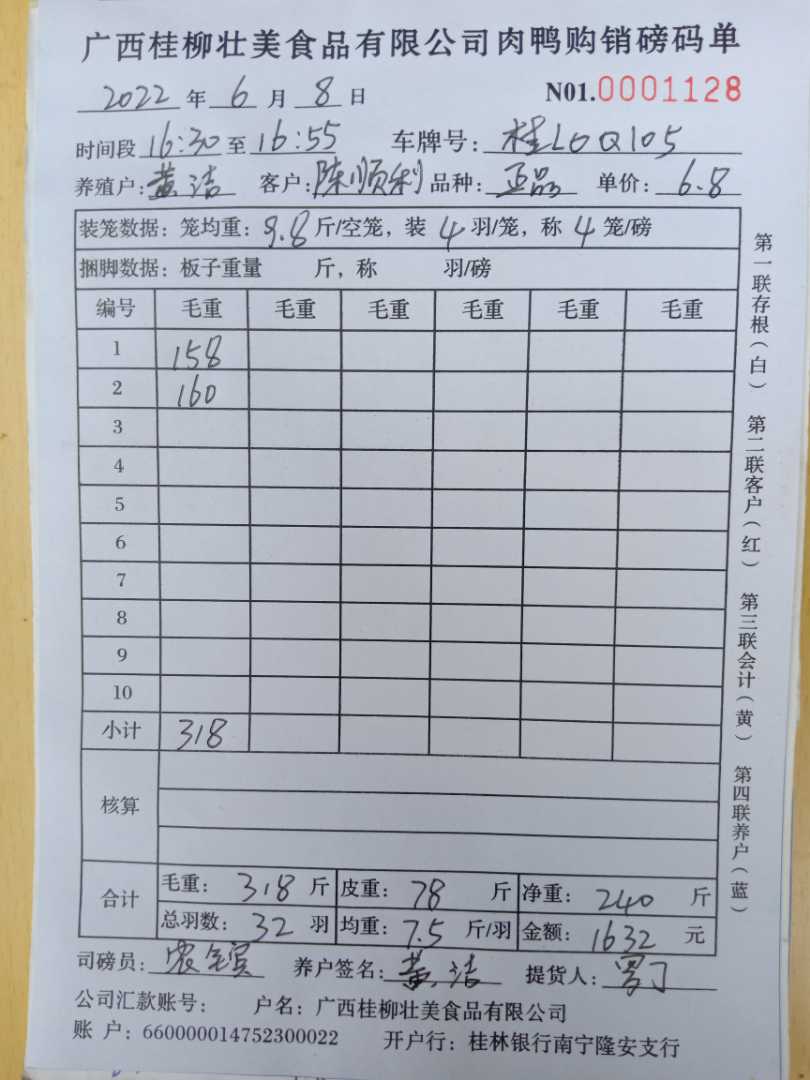 广西桂柳壮美食品有限公司肉鸭购销磅码单
2022 年 6 月 8 日 N01.0001128
时间段 16:30 至 16:55 车牌号: 桂L0Q105
养殖户: 黄洁 客户: 陈顺利 品种: 正品 单价: 6.8
装笼数据: 笼均重: 9.8 斤/空笼, 装 4 羽/笼, 称 4 笼/磅
捆脚数据: 板子重量 斤, 称 羽/磅
编号 毛重 毛重 毛重 毛重 毛重 毛重
1 158
2 160
3
4
5
6
7
8
9
10
小计 318
核算
合计 毛重: 318 斤 皮重: 78 斤 净重: 240 斤
总羽数: 32 羽 均重: 7.5 斤/羽 金额: 1632 元
司磅员: 养户签名: 黄洁 提货人:
公司汇款账号: 户名: 广西桂柳壮美食品有限公司
账 户: 660000014752300022 开户行: 桂林银行南宁隆安支行
第一联存根(白) 第二联客户(红) 第三联会计(黄) 第四联养户(蓝)